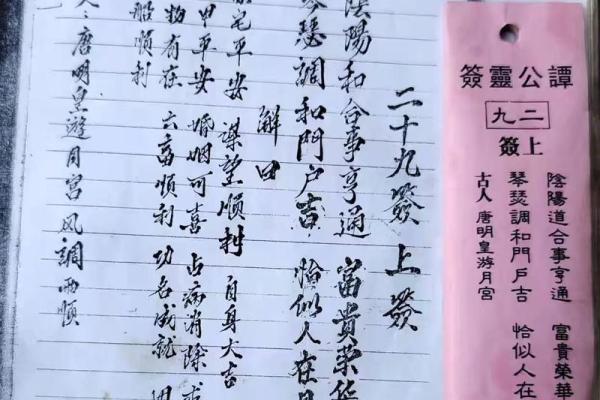 譚公靈簽
二九
上簽
陰陽道合事亨通 富貴榮華
琴瑟調和門戶吉 恰似人在
古人 唐明皇游月宮
二十九簽 上簽
陰陽和合事亨通 富貴榮華
琴瑟調和門戶吉 恰似人在月
解曰
宅平安 謀望順利 自身大吉
甲平安 婚姻可喜 占病消除 求
物有在 六畜順利 功名成就
船順利
人：唐明皇遊月宮 風調雨順